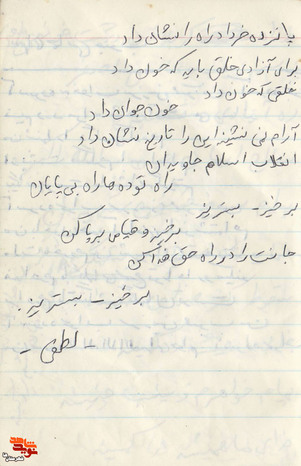 پانزده خرداد راه را نشان داد
برای آزادی خلق باید که خون داد
خلقی که خون داد
خون جوان داد
آرام نمی نشیند این را تاریخ نشان داد
انقلاب اسلام جاویدان
راه توده ها راه بی پایان
برخیز - بستیز
برخیز و قیامی برپا کن
جانت را در راه حق فدا کن
برخیز - بستیز.
- لطفی -
نوید شاهد